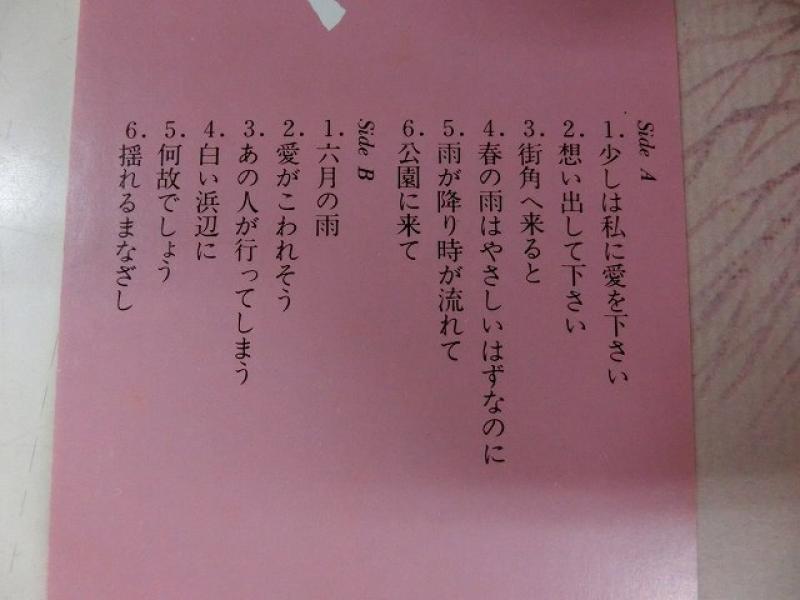 Side A
1. 少しは私に愛を下さい
2. 想い出して下さい
3. 街角へ来ると
4. 春の雨はやさしいはずなのに
5. 雨が降り時が流れて
6. 公園に来て
Side B
1. 六月の雨
2. 愛がこわれそう
3. あの人が行ってしまう
4. 白い浜辺に
5. 何故でしょう
6. 揺れるまなざし